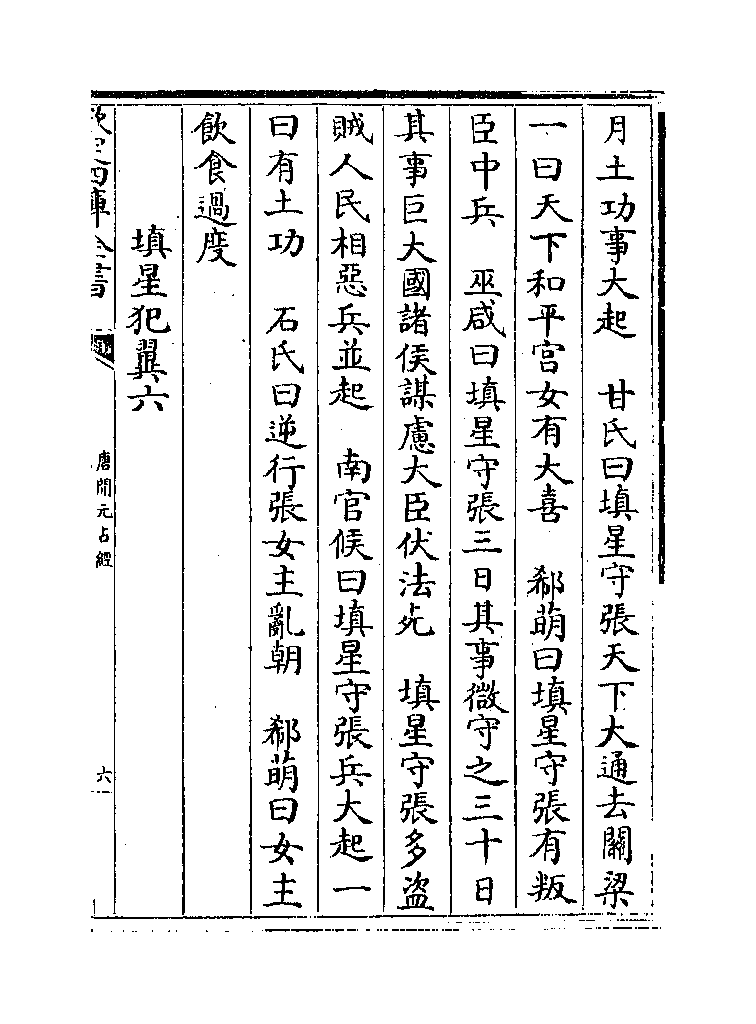 月土功事大起　甘氏曰填星守張天下大通去闗梁
一曰天下和平宫女有大喜　郗萌曰填星守張有叛
臣中兵　巫咸曰填星守張三日其事微守之三十日
其事巨大國諸侯謀慮大臣伏法死　填星守張多盗
賊人民相惡兵並起　南官候曰填星守張兵大起一
曰有土功　石氏曰逆行張女主亂朝　郗萌曰女主
飲食過度
填星犯翼六
欽定四庫全書
唐開元占經
六